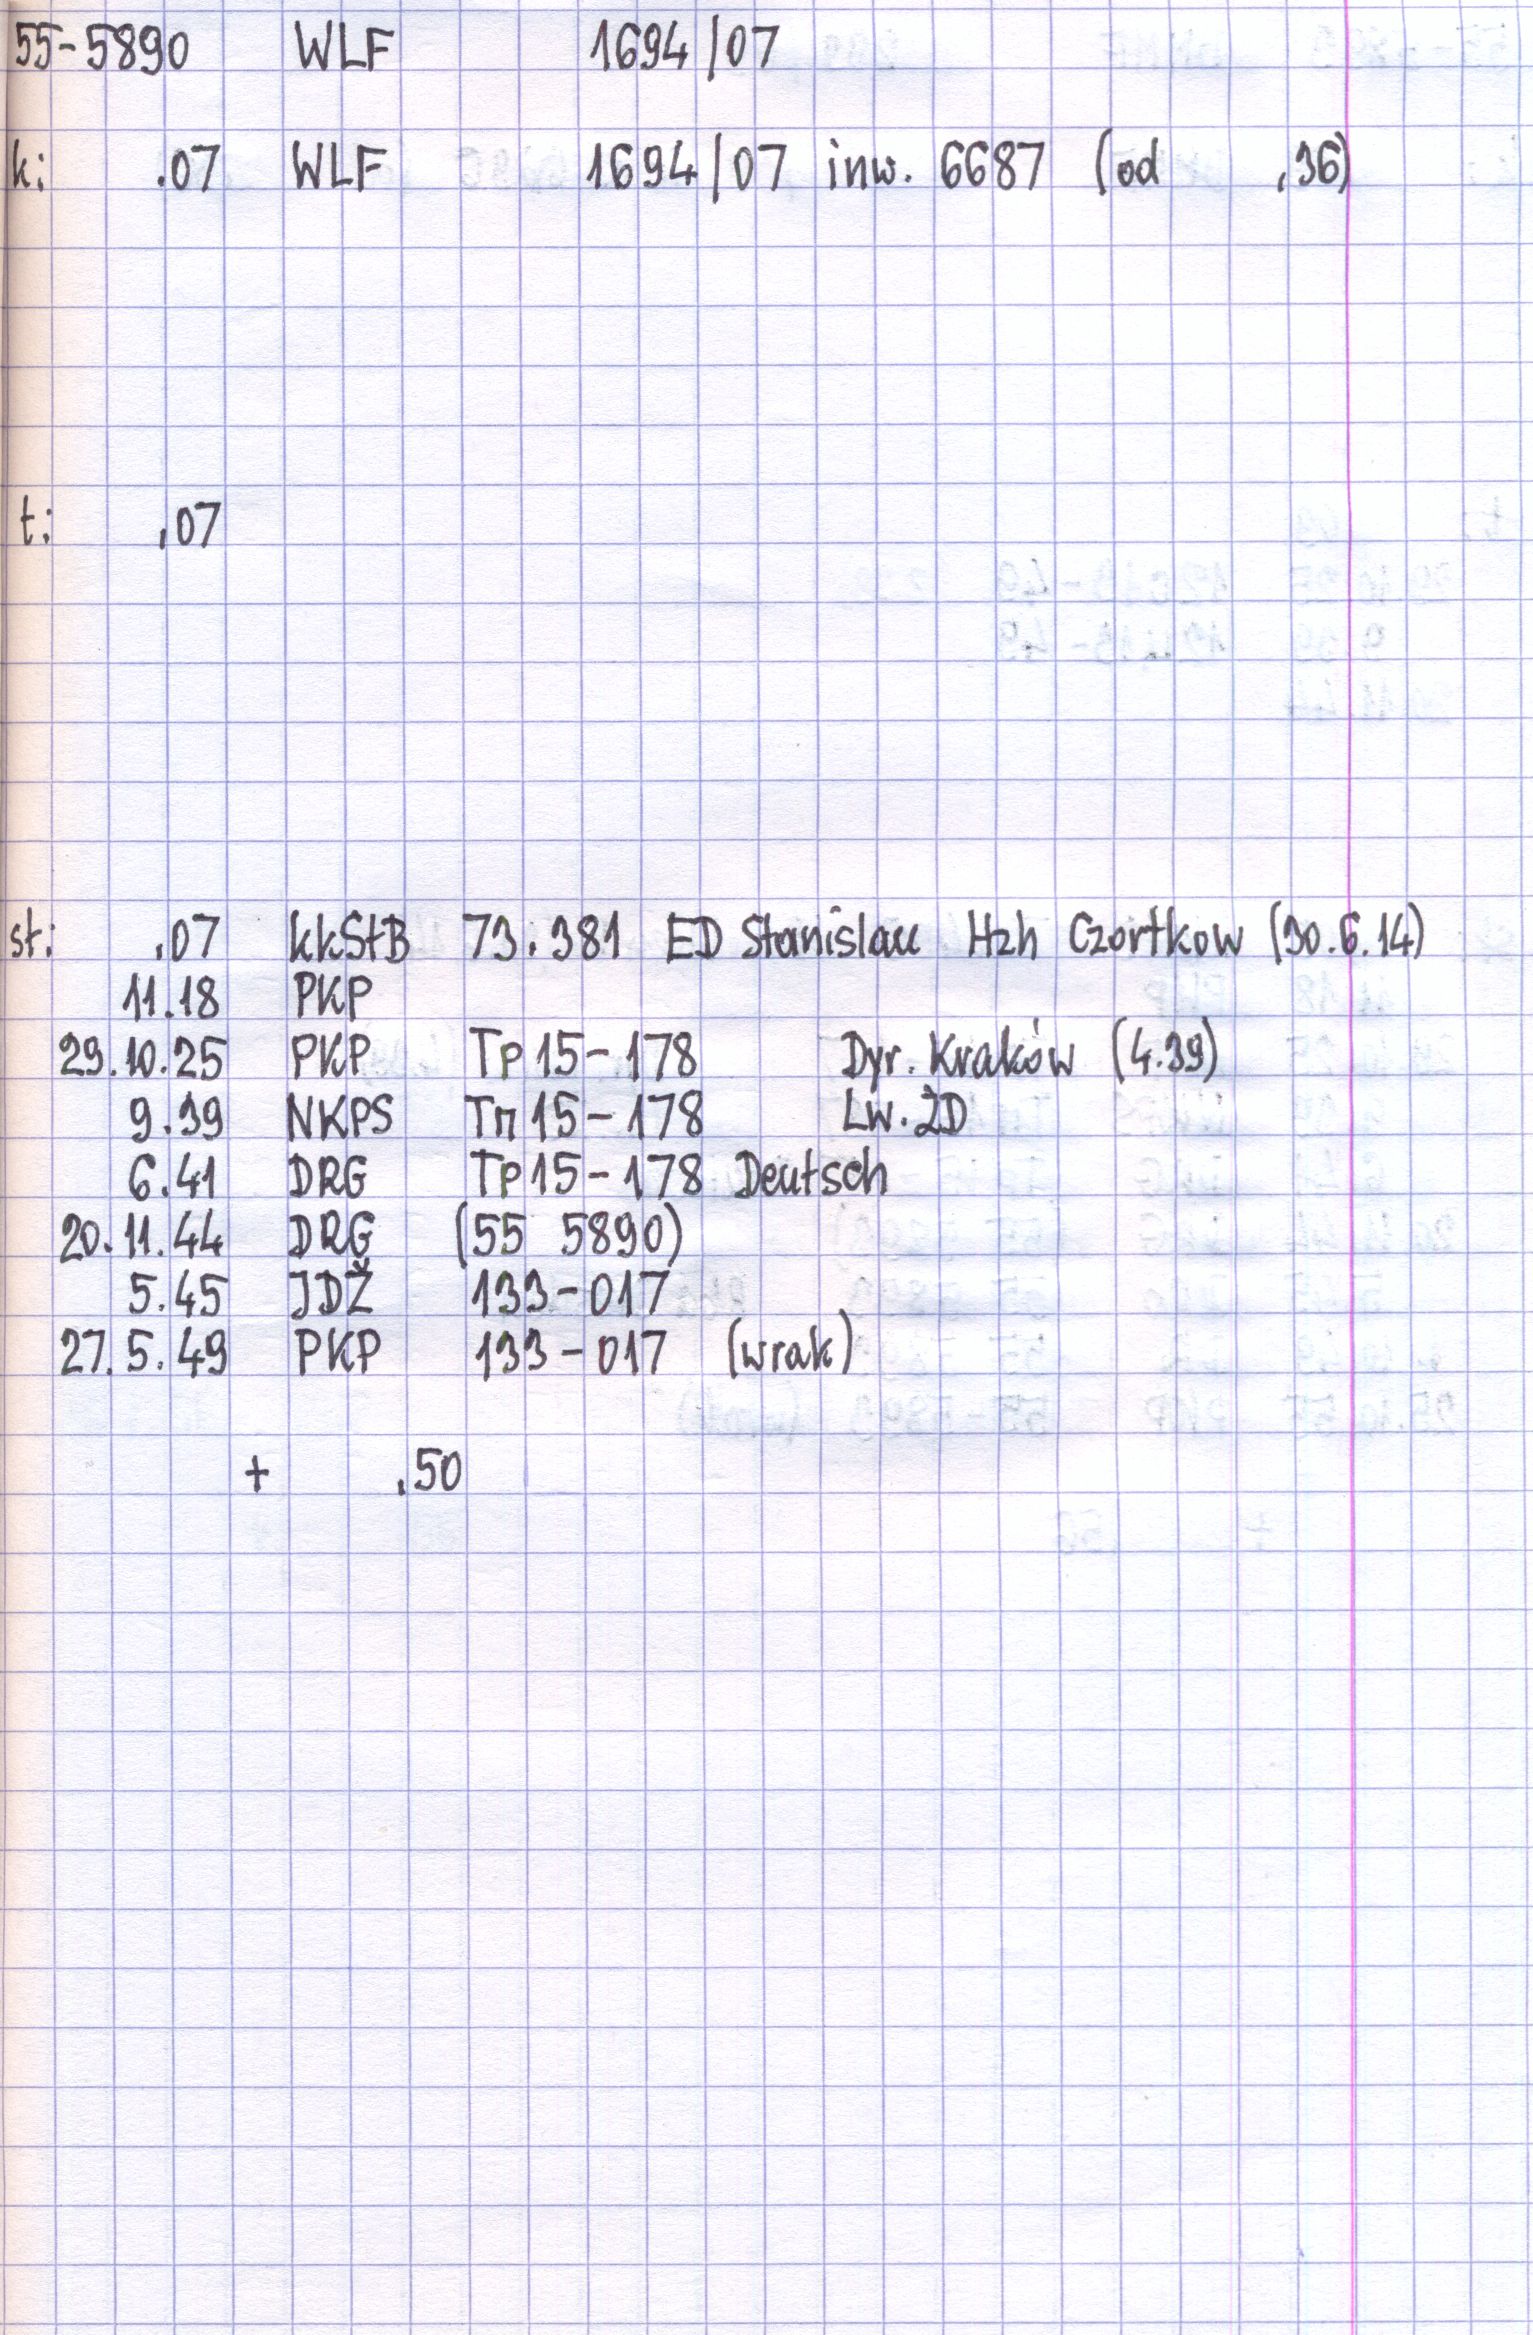 55-5890 WLF 1694/07
k: .07 WLF 1694/07 inw. 6687 (od .36)
t: .07
st: .07 kkStB 73.381 ED Stanislau Hzh Czortkow (30.6.14)
11.18 PKP
29.10.25 PKP Tp15-178 Dyr. Kraków (4.39)
9.39 NKPS Тп15-178 Lw. ŻD
6.41 DRG Tp15-178 Deutsch
20.11.44 DRG (55 5890)
5.45 JDŽ 133-017
27.5.49 PKP 133-017 (wrak)
+ .50